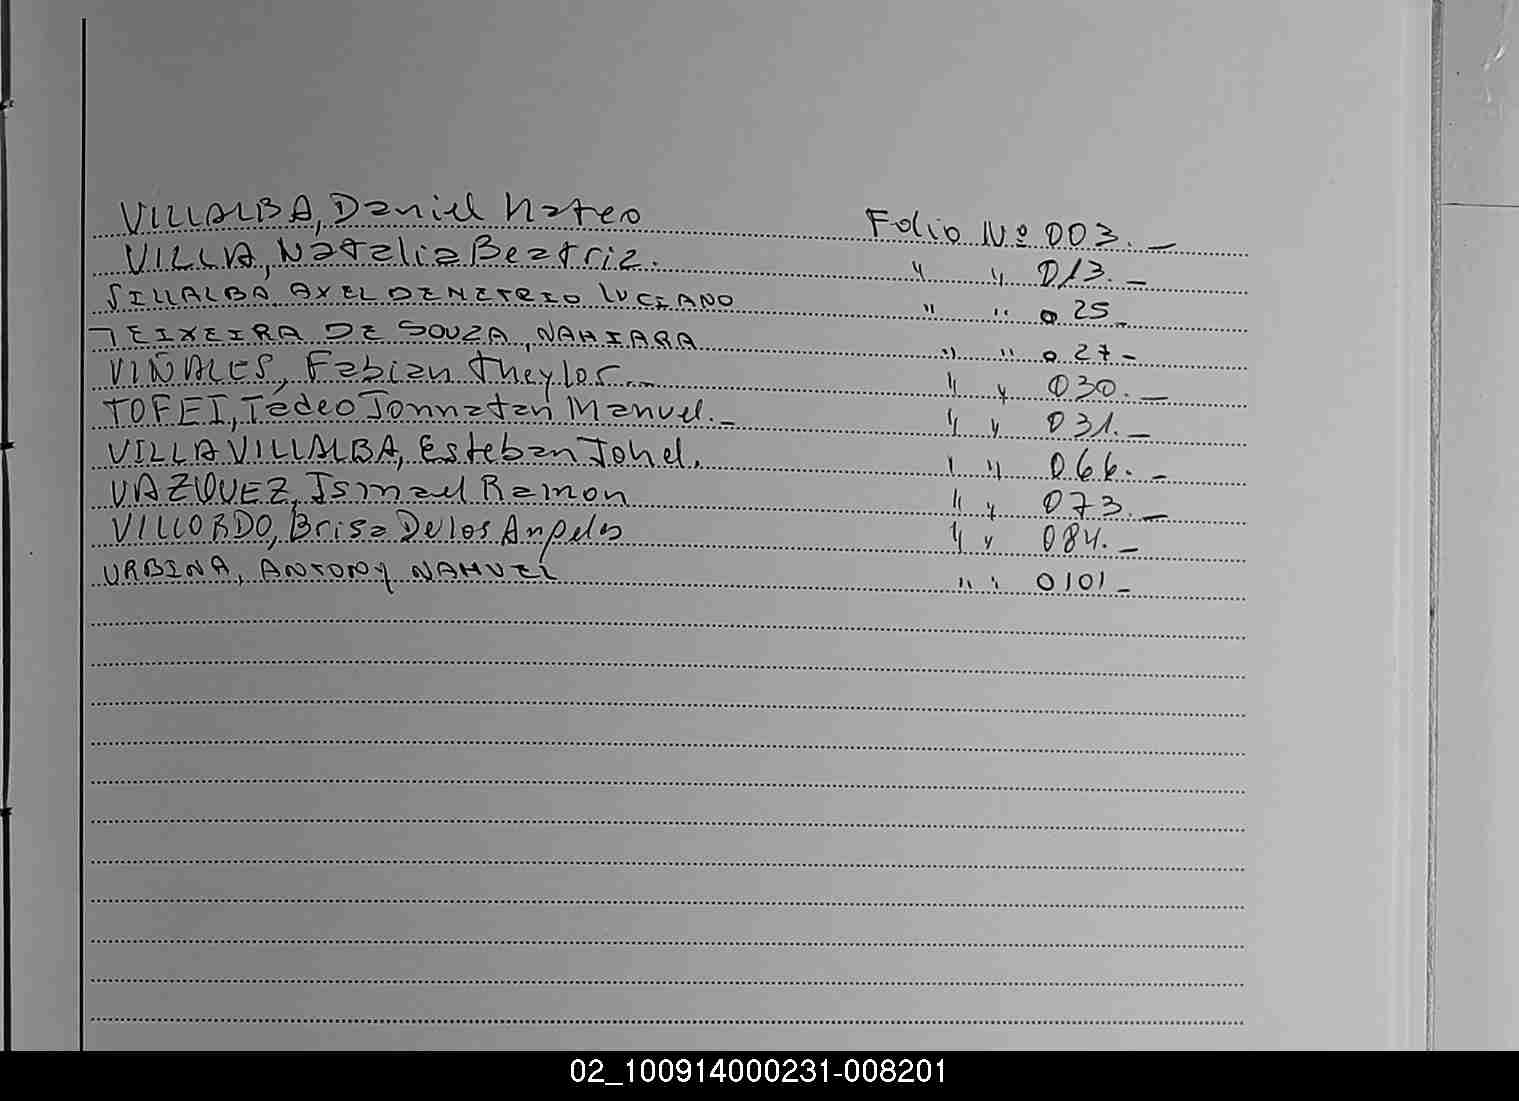 VILLALBA, Daniel Mateo Folio Nº 003.—
VILLA, Natalia Beatriz. " " 013.—
SILLALBA AXEL DEMETRIO LUCIANO " " 025_
TEIXEIRA DE SOUZA, NAHIARA " " 027-
VIÑALES, Fabian Theylor... " " 030.—
TOFEI, Tadeo Jonnatan Manuel.- " " 031.—
VILLA VILLALBA, Esteban Johel. " " 066.-
VAZQUEZ, Ismael Ramon " " 073.—
VILLORDO, Brisa De los Angeles " " 084.-
URBINA, ANTONY NAHUEL " " 0101-
02_100914000231-008201